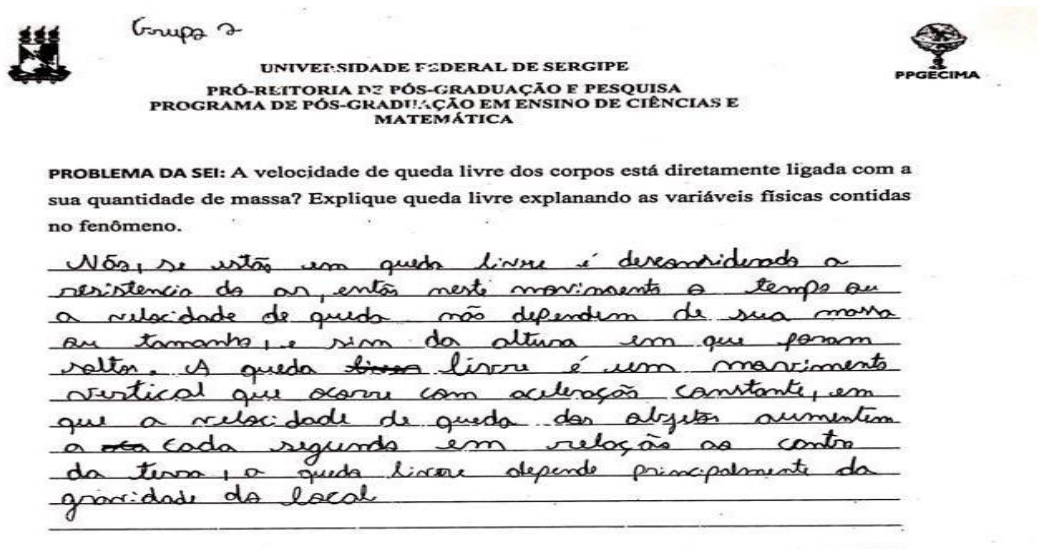 Grupo 2
UNIVERSIDADE FEDERAL DE SERGIPE
PPGECIMA
PRÓ-REITORIA DE PÓS-GRADUAÇÃO E PESQUISA
PROGRAMA DE PÓS-GRADUAÇÃO EM ENSINO DE CIÊNCIAS E
MATEMÁTICA
PROBLEMA DA SEI: A velocidade de queda livre dos corpos está diretamente ligada com a
sua quantidade de massa? Explique queda livre explanando as variáveis físicas contidas
no fenômeno.
Não, se estão em queda livre é desconsiderado a
resistencia do ar, então neste movimento o tempo ou
a velocidade de queda não dependem de sua massa
ou tamanho, e sim da altura em que foram
soltos. A queda livre é um movimento
vertical que ocorre com aceleração constante, em
que a velocidade de queda dos objetos aumentam
a cada segundo em relação ao centro
da terra, a queda livre depende principalmente da
gravidade do local